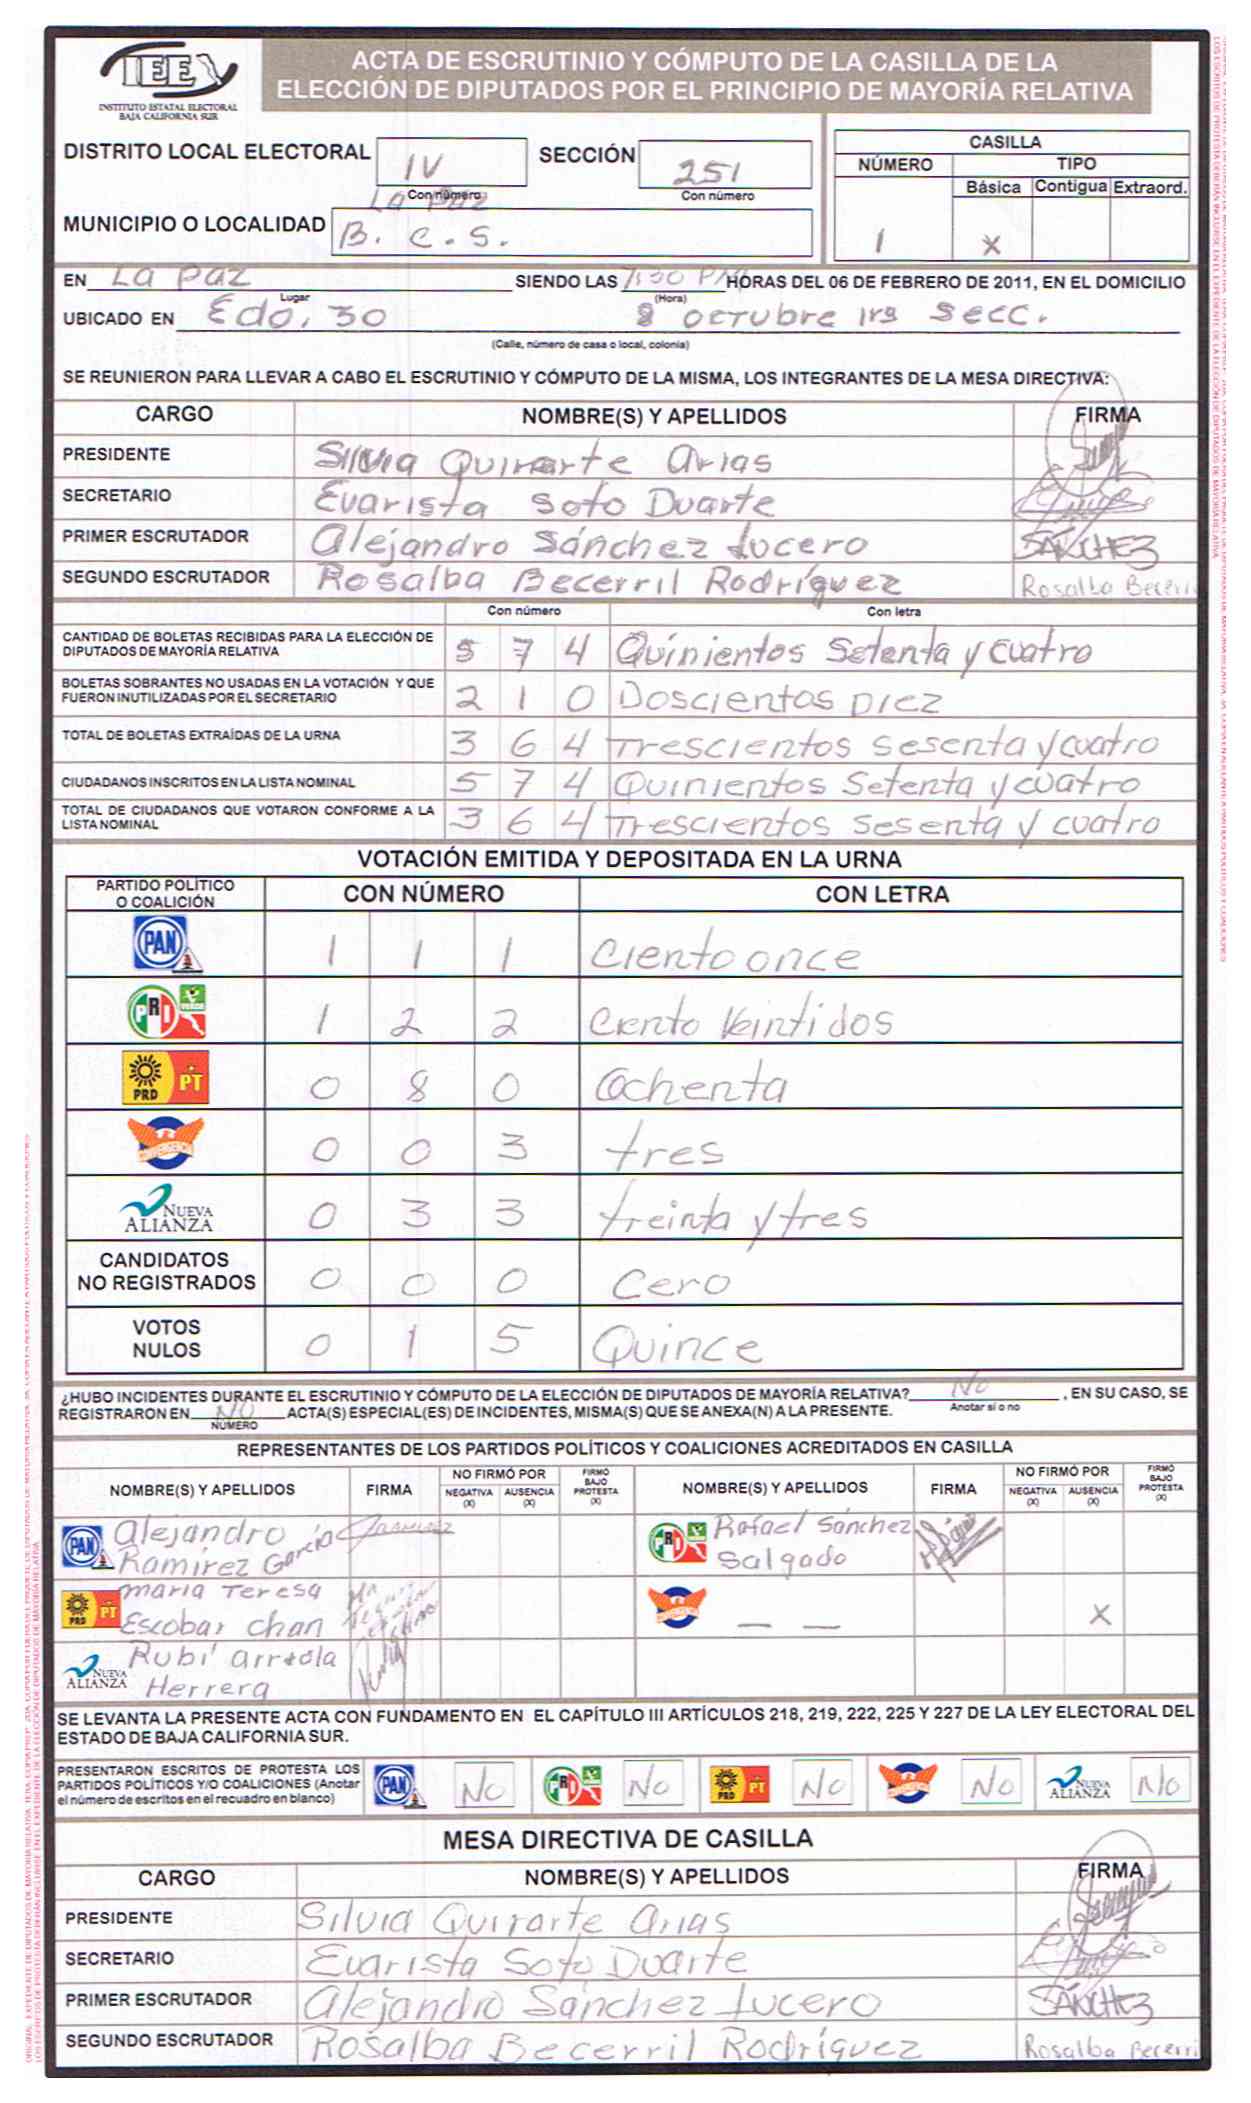 ACTA DE ESCRUTINIO Y CÓMPUTO DE LA CASILLA DE LA
ELECCIÓN DE DIPUTADOS POR EL PRINCIPIO DE MAYORÍA RELATIVA
IEE
INSTITUTO ESTATAL ELECTORAL
BAJA CALIFORNIA SUR
DISTRITO LOCAL ELECTORAL IV SECCIÓN 251
Con número Con número
CASILLA
NÚMERO TIPO
Básica Contigua Extraord.
1 X
La Paz
MUNICIPIO O LOCALIDAD B. C. S.
EN La Paz SIENDO LAS 7:30 PM HORAS DEL 06 DE FEBRERO DE 2011, EN EL DOMICILIO
Lugar (Hora)
UBICADO EN Edo, 30 8 octubre 1ra Secc.
(Calle, número de casa o local, colonia)
SE REUNIERON PARA LLEVAR A CABO EL ESCRUTINIO Y CÓMPUTO DE LA MISMA, LOS INTEGRANTES DE LA MESA DIRECTIVA:
CARGO NOMBRE(S) Y APELLIDOS FIRMA
PRESIDENTE Silvia Quirarte Arias
SECRETARIO Evarista Soto Duarte
PRIMER ESCRUTADOR Alejandro Sánchez Lucero SÁNCHEZ
SEGUNDO ESCRUTADOR Rosalba Becerril Rodríguez Rosalba Becerri
Con número Con letra
CANTIDAD DE BOLETAS RECIBIDAS PARA LA ELECCIÓN DE
DIPUTADOS DE MAYORÍA RELATIVA 5 7 4 Quinientos Setenta y cuatro
BOLETAS SOBRANTES NO USADAS EN LA VOTACIÓN Y QUE
FUERON INUTILIZADAS POR EL SECRETARIO 2 1 0 Doscientos Diez
TOTAL DE BOLETAS EXTRAÍDAS DE LA URNA 3 6 4 Trescientos Sesenta y cuatro
CIUDADANOS INSCRITOS EN LA LISTA NOMINAL 5 7 4 Quinientos Setenta y cuatro
TOTAL DE CIUDADANOS QUE VOTARON CONFORME A LA
LISTA NOMINAL 3 6 4 Trescientos Sesenta y cuatro
VOTACIÓN EMITIDA Y DEPOSITADA EN LA URNA
PARTIDO POLÍTICO
O COALICIÓN CON NÚMERO CON LETRA
PAN 1 1 1 Ciento once
PRI VERDE 1 2 2 Ciento Veintidos
PRD PT 0 8 0 Ochenta
CONVERGENCIA 0 0 3 tres
NUEVA ALIANZA 0 3 3 treinta y tres
CANDIDATOS
NO REGISTRADOS 0 0 0 Cero
VOTOS
NULOS 0 1 5 Quince
¿HUBO INCIDENTES DURANTE EL ESCRUTINIO Y CÓMPUTO DE LA ELECCIÓN DE DIPUTADOS DE MAYORÍA RELATIVA? No , EN SU CASO, SE
Anotar si o no
REGISTRARON EN NO ACTA(S) ESPECIAL(ES) DE INCIDENTES, MISMA(S) QUE SE ANEXA(N) A LA PRESENTE.
NÚMERO
REPRESENTANTES DE LOS PARTIDOS POLÍTICOS Y COALICIONES ACREDITADOS EN CASILLA
NOMBRE(S) Y APELLIDOS FIRMA NO FIRMÓ POR NEGATIVA (X) AUSENCIA (X) FIRMÓ BAJO PROTESTA (X) NOMBRE(S) Y APELLIDOS FIRMA NO FIRMÓ POR NEGATIVA (X) AUSENCIA (X) FIRMÓ BAJO PROTESTA (X)
PAN Alejandro Ramírez García PRI Rafael Sánchez Salgado
PRD PT Maria Teresa Escobar Chan CONVERGENCIA — — X
NUEVA ALIANZA Rubi Arreola Herrera
SE LEVANTA LA PRESENTE ACTA CON FUNDAMENTO EN EL CAPÍTULO III ARTÍCULOS 218, 219, 222, 225 Y 227 DE LA LEY ELECTORAL DEL
ESTADO DE BAJA CALIFORNIA SUR.
PRESENTARON ESCRITOS DE PROTESTA LOS
PARTIDOS POLÍTICOS Y/O COALICIONES (Anotar
el número de escritos en el recuadro en blanco)
PAN No PRI No PRD PT No CONVERGENCIA No NUEVA ALIANZA No
MESA DIRECTIVA DE CASILLA
CARGO NOMBRE(S) Y APELLIDOS FIRMA
PRESIDENTE Silvia Quirarte Arias
SECRETARIO Evarista Soto Duarte
PRIMER ESCRUTADOR Alejandro Sánchez Lucero SÁNCHEZ
SEGUNDO ESCRUTADOR Rosalba Becerril Rodríguez Rosalba Becerri